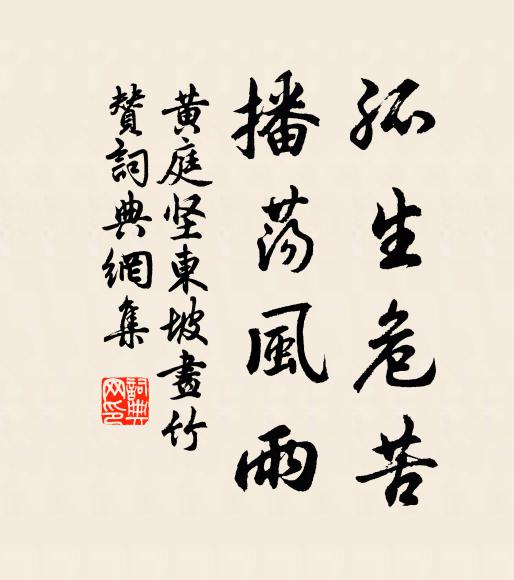 孤生危苦
播荡風雨
黄庭坚東坡畫竹
贊詞典網集
詞典網印